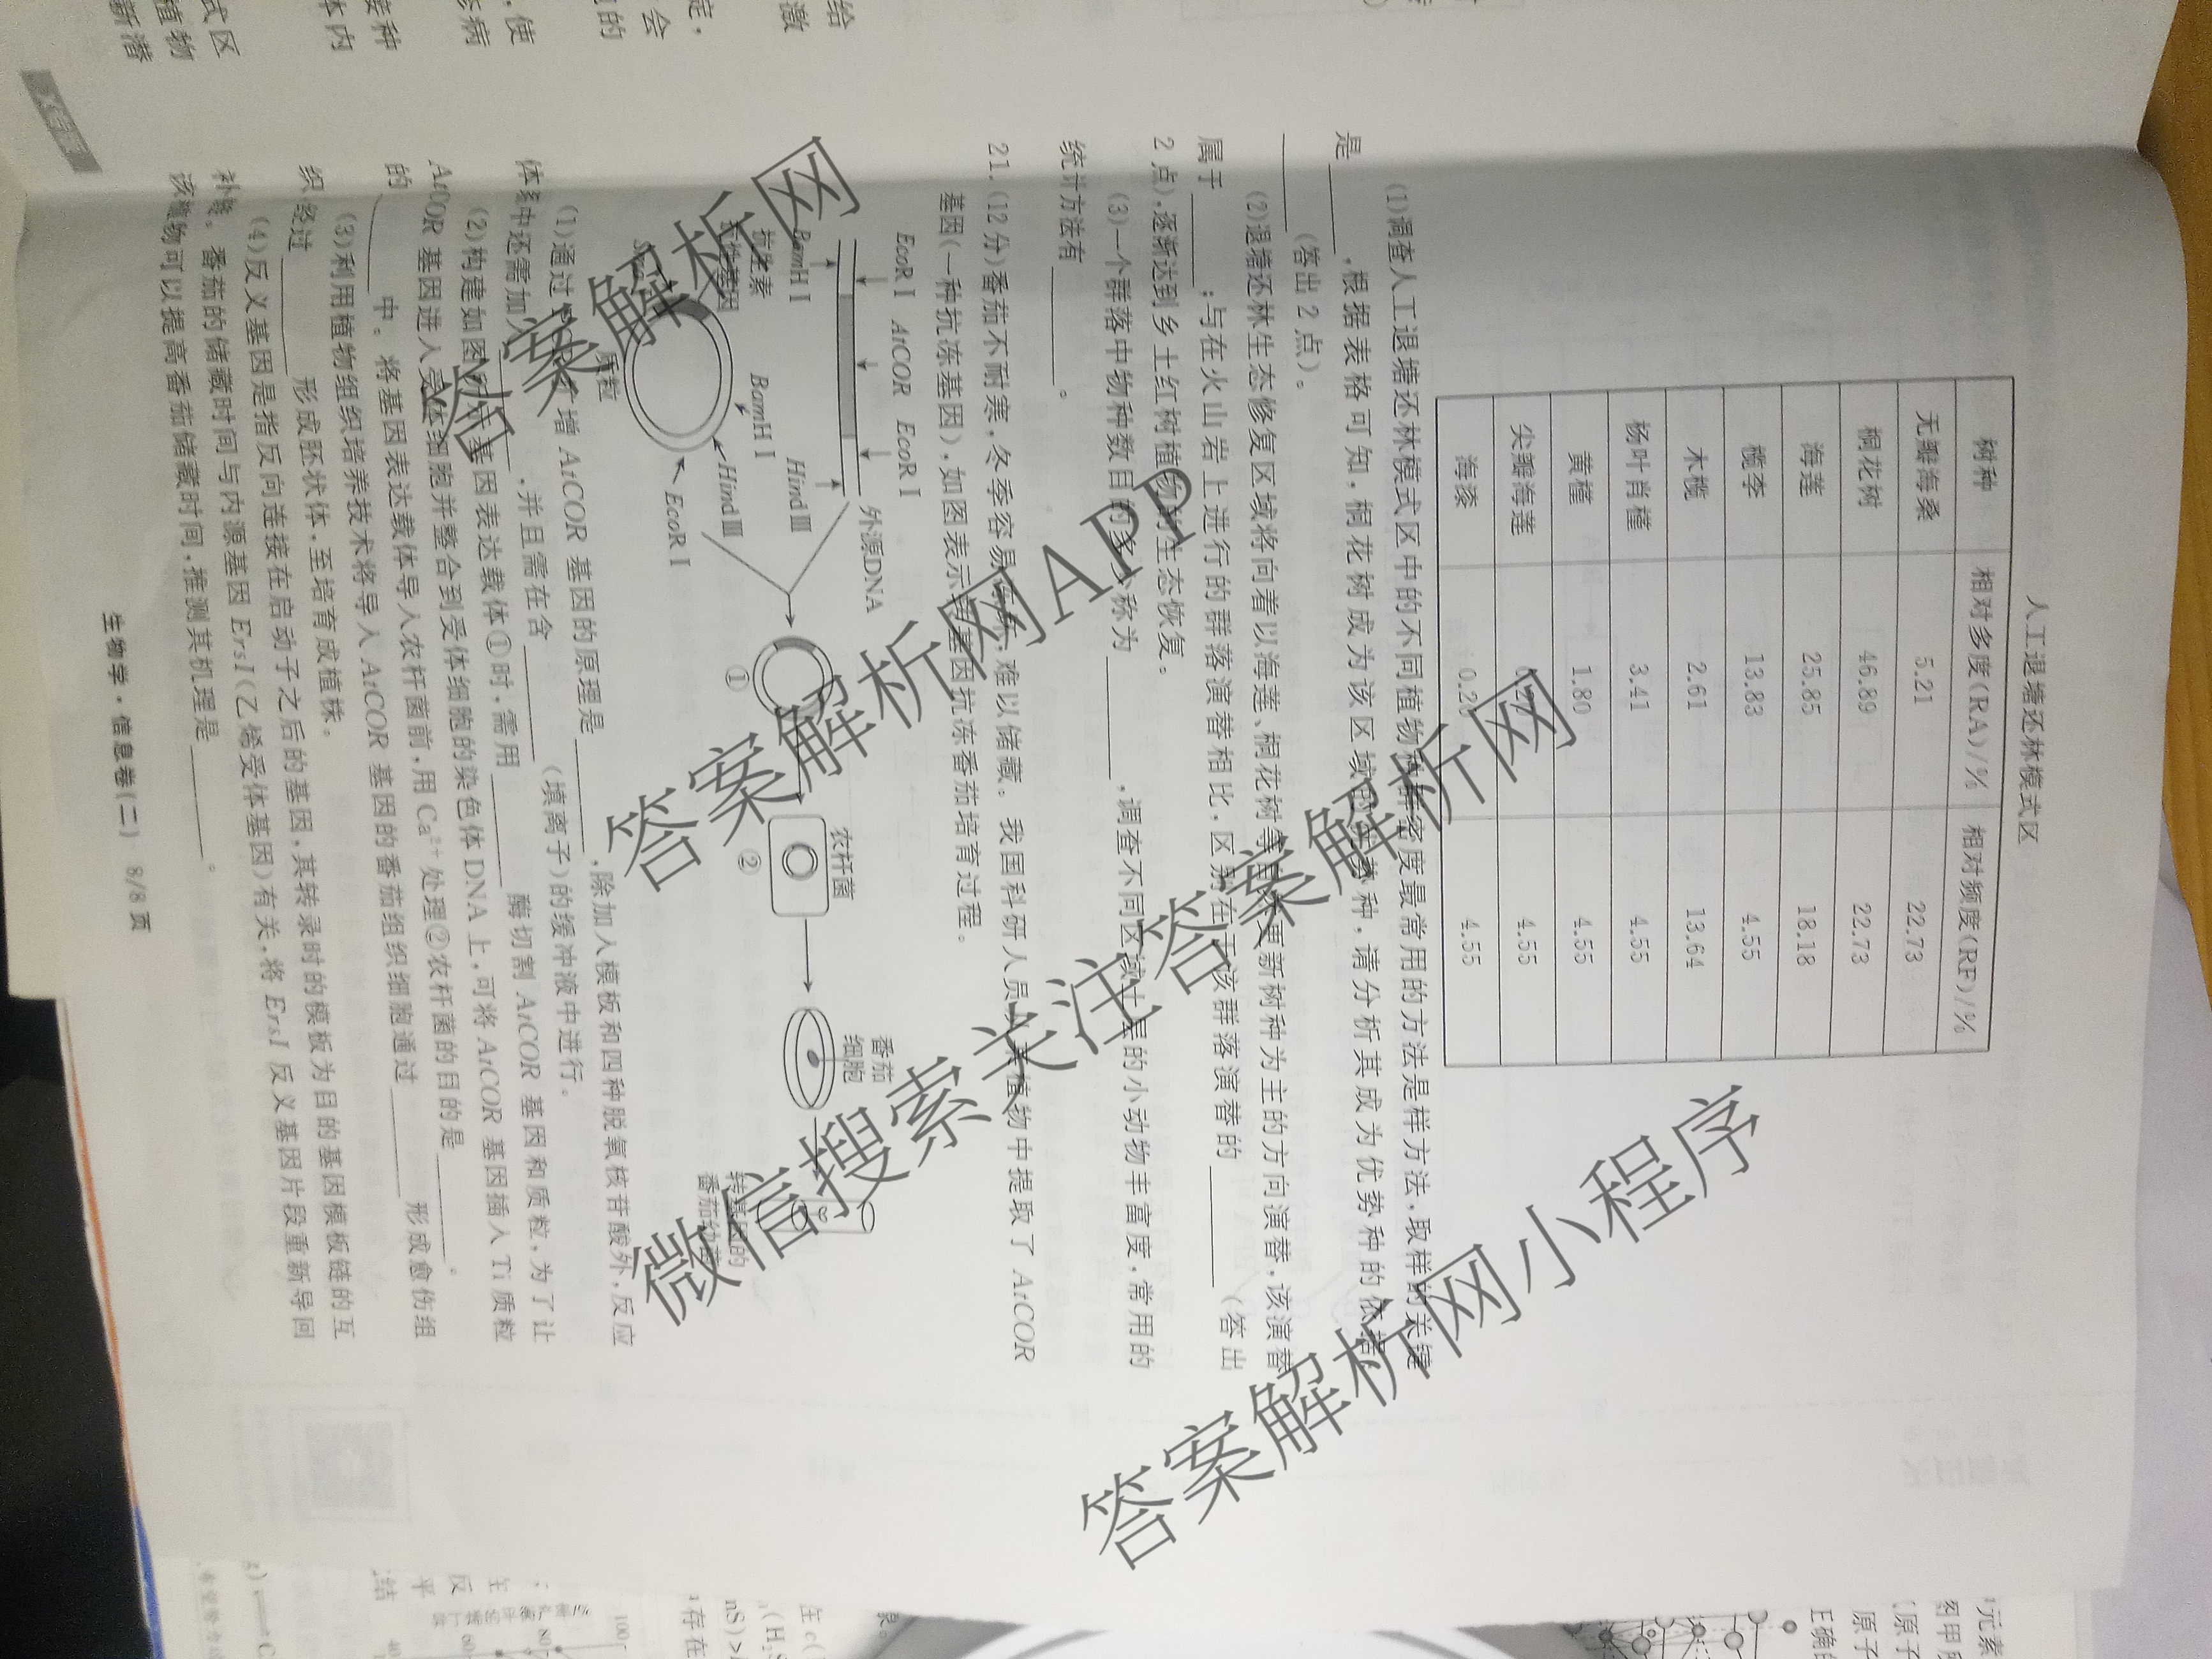 人工退塘还林模式区
树种 相对多度(RA)/% 相对频度(RF)/%
无瓣海桑 5.21 22.73
桐花树 46.89 22.73
海莲 25.85 18.18
榄李 13.83 4.55
木榄 2.61 13.64
杨叶肖槿 3.41 4.55
黄槿 1.80 4.55
尖瓣海莲 4.55
海漆 0.20 4.55
(1)调查人工退塘还林模式区中的不同植物种群密度最常用的方法是样方法,取样的关键
是______,根据表格可知,桐花树成为该区域的优势种,请分析其成为优势种的依据
______(答出2点)。
(2)退塘还林生态修复区域将向着以海莲、桐花树等更新树种为主的方向演替,该演替
属于______;与在火山岩上进行的群落演替相比,区别在于该群落演替的______(答出
2点),逐渐达到乡土红树植物的生态恢复。
(3)一个群落中物种数目的多少称为______,调查不同区域土层的小动物丰富度,常用的
统计方法有______。
21.(12分)番茄不耐寒,冬季容易冻坏,难以储藏。我国科研人员从某植物中提取了AtCOR
基因(一种抗冻基因),如图表示转基因抗冻番茄培育过程。
EcoRⅠ AtCOR EcoRⅠ
外源DNA
BamHⅠ HindⅢ
抗生素
抗性基因
BamHⅠ
HindⅢ
EcoRⅠ
质粒
①
农杆菌
②
番茄
细胞
转基因的
番茄幼苗
(1)通过PCR扩增AtCOR基因的原理是______,除加入模板和四种脱氧核苷酸外,反应
体系中还需加入______,并且需在含______(填离子)的缓冲液中进行。
(2)构建如图所示基因表达载体①时,需用______酶切割AtCOR基因和质粒,为了让
AtCOR基因进入受体细胞并整合到受体细胞的染色体DNA上,可将AtCOR基因插入Ti质粒
的______中。将基因表达载体导入农杆菌前,用Ca²⁺处理②农杆菌的目的是______。
(3)利用植物组织培养技术将导入AtCOR基因的番茄组织细胞通过______形成愈伤组
织经过______形成胚状体,至培育成植株。
(4)反义基因是指反向连接在启动子之后的基因,其转录时的模板为目的基因模板链的互
补链。番茄的储藏时间与内源基因ErsI(乙烯受体基因)有关,将ErsI反义基因片段重新导回
该植物可以提高番茄储藏时间,推测其机理是______。
生物学·信息卷(二) 8/8页
答案解析网
答案解析网APP
微信搜索关注答案解析网
答案解析网小程序